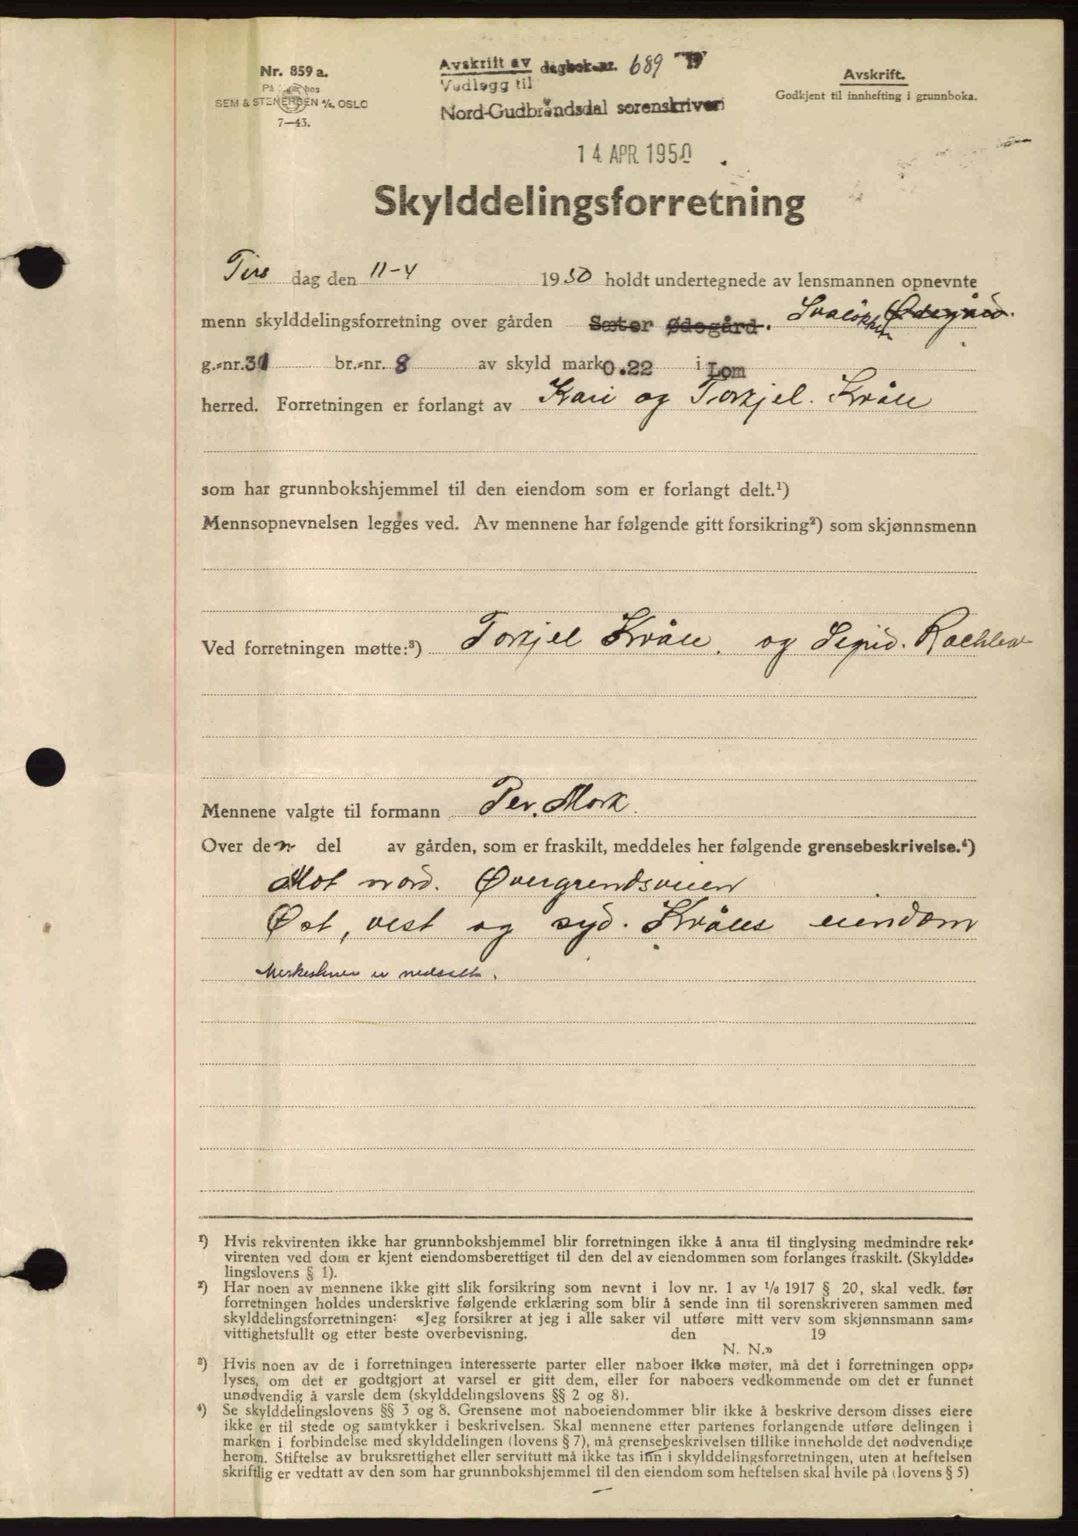 Nr. 859 a.
SEM & STENERSEN A/S, OSLO
7—43.
Avskrift av dagbok nr. 689 19
Vedlegg til
Nord-Gudbrandsdal sorenskriveri
14 APR 1950
Avskrift.
Godkjent til innhefting i grunnboka.
Skylddelingsforretning
Tirs dag den 11-4 1950 holdt undertegnede av lensmannen opnevnte
menn skylddelingsforretning over gården Sæter Ødegård. Ødegård.
g.-nr. 31 br.-nr. 8 av skyld mark 0.22 i Lom
herred. Forretningen er forlangt av Kari og Torkjel Kvåle
som har grunnbokshjemmel til den eiendom som er forlangt delt.¹)
Mennsopnevnelsen legges ved. Av mennene har følgende gitt forsikring²) som skjønnsmenn
Ved forretningen møtte:³) Torkjel Kvåle. og Sigrid.
Mennene valgte til formann Per. Mork.
Over den del av gården, som er fraskilt, meddeles her følgende grensebeskrivelse.⁴)
Mot nord. Øvergrendsveien
Øst, vest og syd. Kvåles eiendom
Merkestener er nedsatt.
¹) Hvis rekvirenten ikke har grunnbokshjemmel blir forretningen ikke å anta til tinglysing medmindre rek-
virenten ved dom er kjent eiendomsberettiget til den del av eiendommen som forlanges fraskilt. (Skyldde-
lingslovens § 1).
²) Har noen av mennene ikke gitt slik forsikring som nevnt i lov nr. 1 av 1/6 1917 § 20, skal vedk. før
forretningen holdes underskrive følgende erklæring som blir å sende inn til sorenskriveren sammen med
skylddelingsforretningen: «Jeg forsikrer at jeg i alle saker vil utføre mitt verv som skjønnsmann sam-
vittighetsfullt og etter beste overbevisning. den 19
N. N.»
³) Hvis noen av de i forretningen interesserte parter eller naboer ikke møter, må det i forretningen opp-
lyses, om det er godtgjort at varsel er gitt dem, eller for naboers vedkommende om det er funnet
unødvendig å varsle dem (skylddelingslovens §§ 2 og 8).
⁴) Se skylddelingslovens §§ 3 og 8. Grensene mot naboeiendommer blir ikke å beskrive dersom disses eiere
ikke er til stede og samtykker i beskrivelsen. Skal mennene etter partenes forlangende utføre delingen i
marken i forbindelse med skylddelingen (lovens § 7), må grensebeskrivelsen tillike inneholde det nødvendige
herom. Stiftelse av bruksrettighet eller servitutt må ikke tas inn i skylddelingsforretningen, uten at heftelsen
skriftlig er vedtatt av den som har grunnbokshjemmel til den eiendom som heftelsen skal hvile på (lovens § 5)